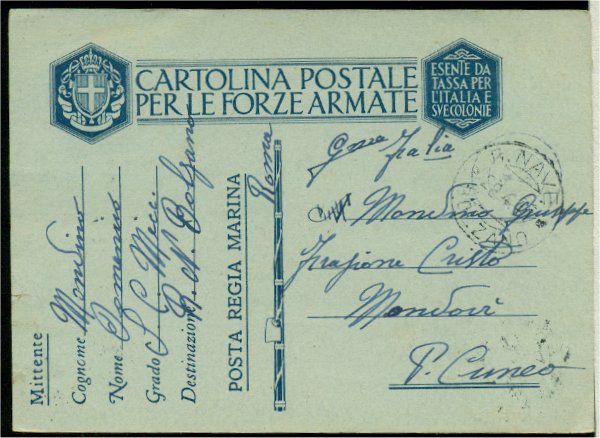 CARTOLINA POSTALE
PER LE FORZE ARMATE
ESENTE DA
TASSA PER
L'ITALIA E
SVE COLONIE
Mittente
Cognome Mondino
Nome Domenico
Grado S. C. Mecc.
Destinazione R. N. Bolzano
POSTA REGIA MARINA Roma
Italia
R. NAVE
BOLZANO
Mondino Giuseppe
Frazione Cristo
Mondovì
P. Cuneo